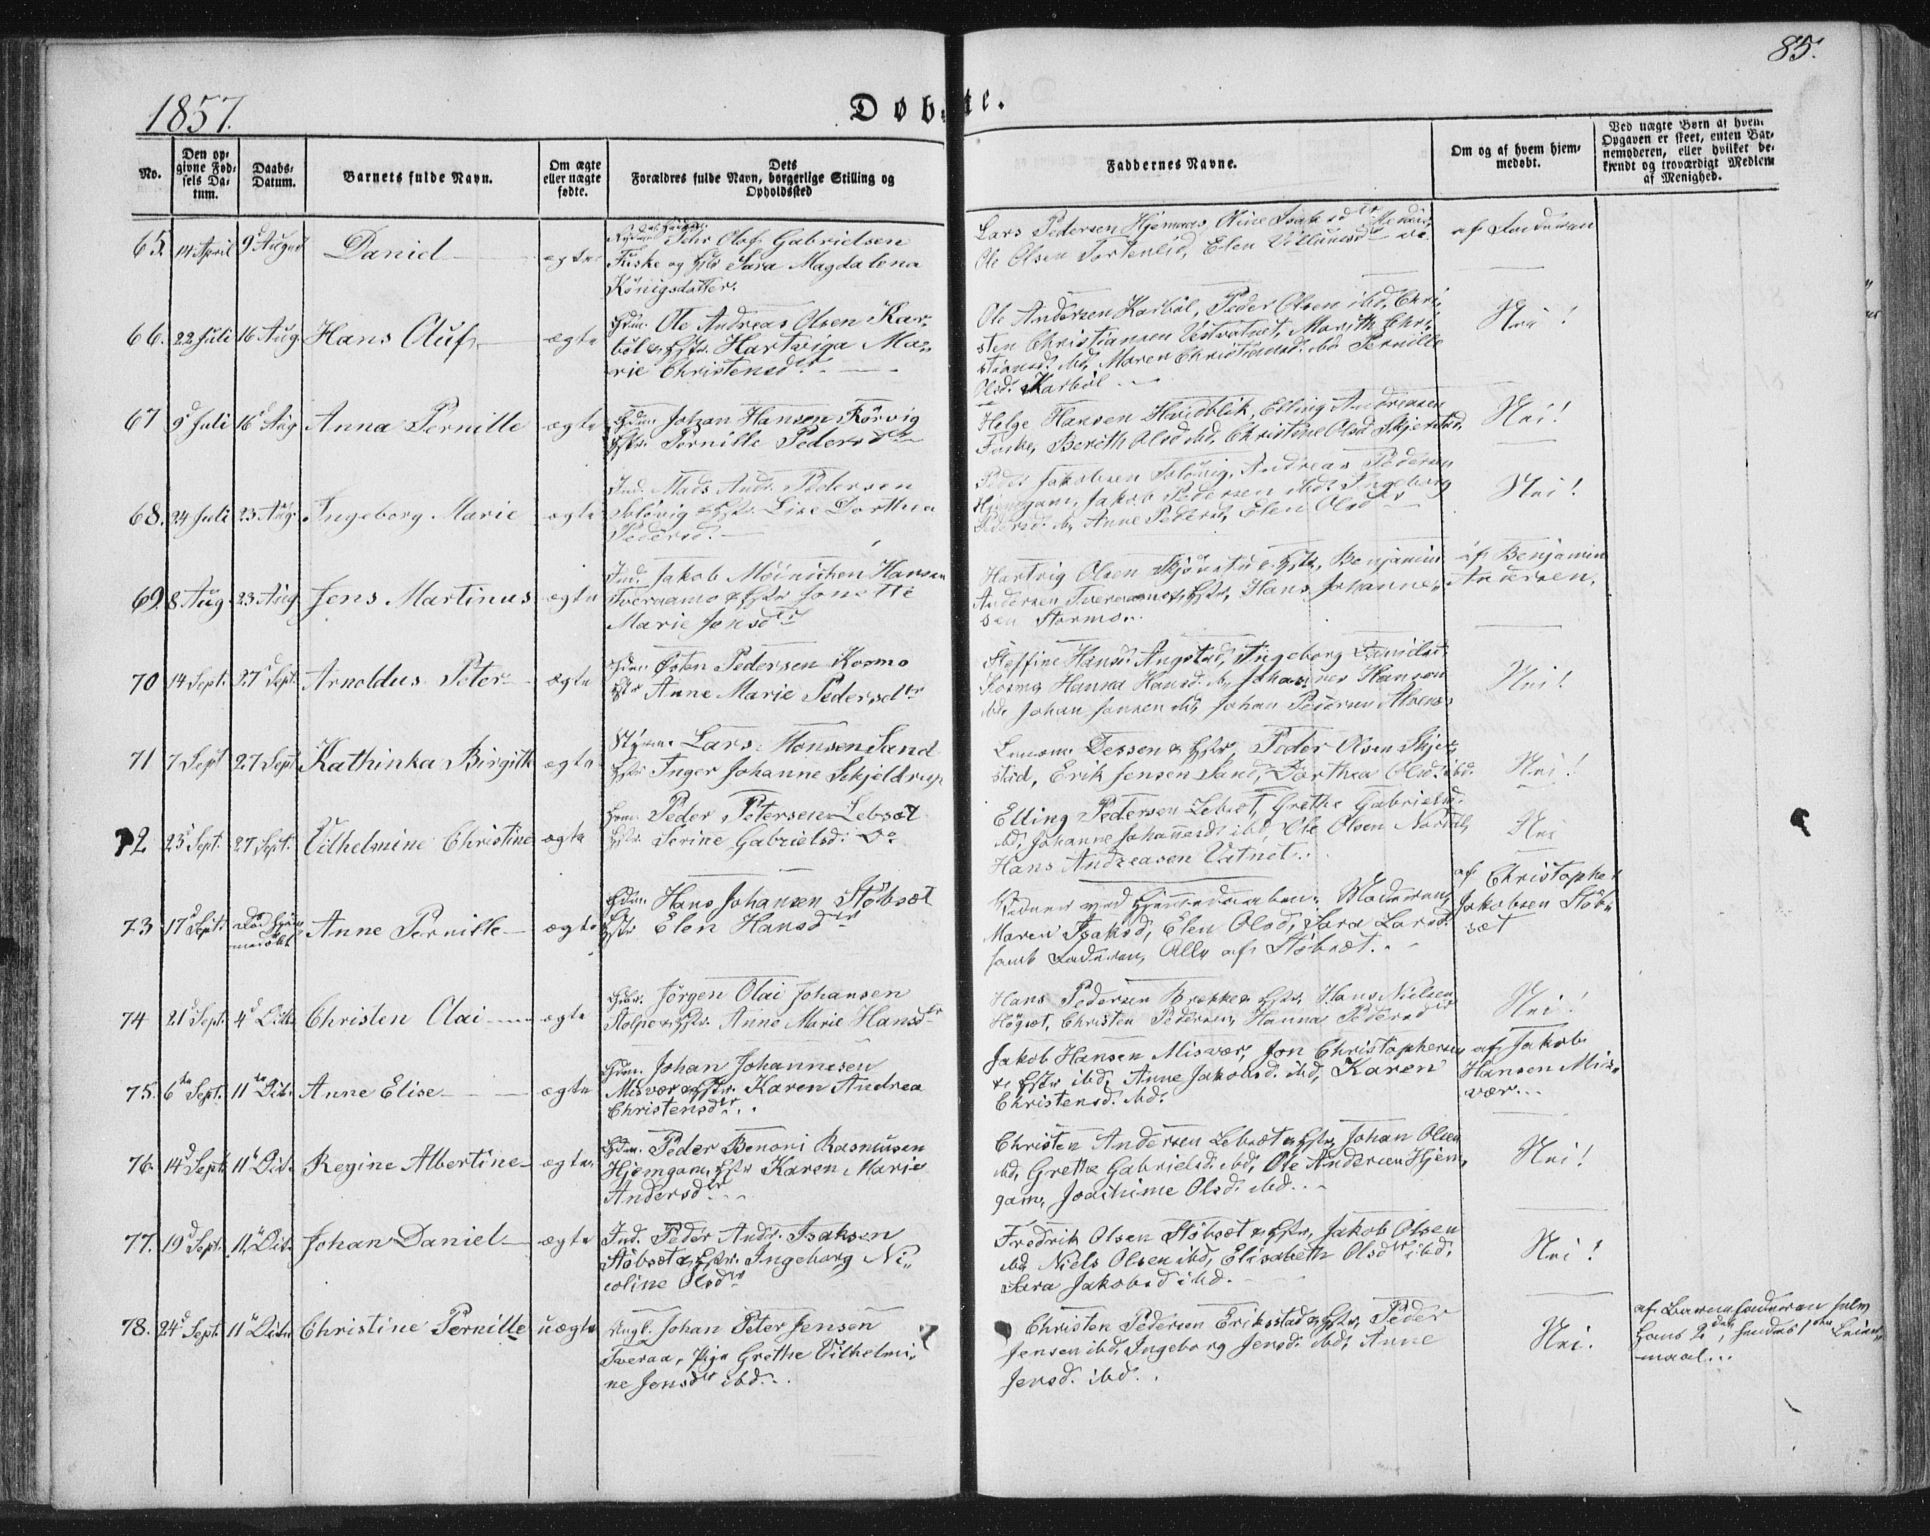 85.
1857.
Døbte.
No.
Den opgivne Fødsels Datum.
Daabs-Datum.
Barnets fulde Navn.
Om ægte eller uægte fødte.
Dets Forældres fulde Navn, borgerlige Stilling og Opholdssted
Faddernes Navne.
Om og af hvem hjemmedøbt.
Ved uægte Børn af hvem Opgaven er skeet, enten Barnemoderen, eller hvilket bekjendt og troværdigt Medlem af Menighed.
65. 14 April 9d August Daniel ægte
Pehr Olof Gabrielsen
Fuske og Hstr Sara Magdalena
Königsdatter.
Lars Pedersen Hjemaas, Oline
Ole Olsen Elen
af Faderen
66. 22 Juli 16 Aug. Hans Oluf ægte
Hdm. Ole Andreas Olsen Kar-
böl & Hstr. Hartviga Ma-
rie Christensdtr
Ole Andersen Karböl, Peder Olsen ibd, Chri-
sten Christiansen Vestvatnet, Marith Chri-
stiansd. ibd, Maren Christiansd. ibd Pernille
Olsd. Karböl
Nei!
67 9d Juli 16d Aug Anna Pernille ægte
Hdm Johan Hansen Körvig
Hstr. Pernille Pedersdtr
Helge Hansen Hvidblik, Elling Andreasen
Fuske, Berith Olsd ibd, Christine Olsd Skjerstad,
Nei!
68. 24 Juli 23 Aug. Ingeborg Marie ægte
Ind. Mads Andr. Pedersen
& Hstr. Lise Dorthea
Pedersd.
Peder Jakobsen Andreas Pedersen
Hjemgam, Jakob Pedersen ibd. Ingeborg
Pedersd. ib, Anne Pedersd, Elen Olsdtr
Nei!
69. 8 Aug 23 Aug Jens Martinus ægte
Ind. Jakob Möinichen Hansen
Tveraamo & Hstr Jonette
Marie Jonsdtr
Hartvig Olsen & Hstr, Benjamin
Andersen Tveraamo & Hstr, Hans Johanne-
sen Stormo.
af Benjamin
Andersen.
70 14 Sept. 27d Sept. Arnoldus Peter ægte
Hdm Östen Pedersen Kosmo
Hstr Anne Marie Pedersdtr
Steffine Hansd. Angstad, Ingeborg Danielsd.
Kosmo Hanna Hansd. ib, Johannes Hansen
ibd. Johan Jansen ibd, Johan Pedersen
Nei!
71 7 Sept 27 Sept Kathinka Birgitte ægte
Lars Monsen Sand
Hstr Inger Johanne Schjeldrup
Lensm. Jessen & Hstr, Peder Olsen Skjer-
stad, Erik Jensen Sand, Dorthea Olsd. ibd.
Nei!
72 23d Sept. 27 Sept. Vilhelmine Christine ægte
Hdm. Peder Petersen Lebsæt
Hstr. Serine Gabrielsd. Do
Elling Pedersen Lebsæt, Grethe Gabrielsd.
ibd, Johanne Johannesd. ibd, Ole Olsen
Hans Andreasen Vatnet.
Nei
73 17d Sept. Anne Pernille ægte
Hdm. Hans Johansen Stöbsæt
Hstr Elen Hansdtr
Vidner ved Hjemmedaaben: Moderen,
Maren Isaksd, Elen Olsd, Sara Larsd.
samt Faderen, Alle af Stöbsæt.
af Christopher
Jakobsen Stöb-
sæt
74 21d Sept. 4d Octb. Christen Olai ægte
Jörgen Olai Johansen
Stolpe & Hstr. Anne Marie Hansdtr
Hans Pedersen Brekke & Hstr, Hans Nielsen
Högset, Christen Pedersen, Hanna Pedersdtr
Nei!
75. 6te Sept. 11te Octb. Anne Elise ægte
Hdm. Johan Johannesen
Misvær & Hstr. Karen Andrea
Christensdtr
Jakob Hansen Misvær, Jon Christophersen
& Hstr ibd, Anne Jakobsd. ibd, Karen
Christensd. ibd.
af Jakob
Hansen Mis-
vær.
76. 14d Sept. 11te Octb. Regine Albertine ægte
Hdm. Peder Benoni Rasmusen
Hjemgam, Hstr Karen Marie
Andersdtr
Christen Andersen Lebsæt & Hstr, Johan Olsen
ibd, Grethe Gabrielsd. ibd, Ole Andersen Hjem-
gam, Joachime Olsd. ibd.
Nei!
77. 19d Sept. 11te Octb. Johan Daniel ægte
Ind. Peder Andr. Isaksen
Stöbsæt & Hstr. Ingeborg Ni-
coline Olsdtr
Fredrik Olsen Stöbsæt & Hstr, Jakob Olsen
ibd Niels Olsen ibd, Elisabeth Olsdtr ibd,
Sara Jakobsd ibd.
Nei!
78. 24d Sept. 11te Octb. Christine Pernille uægte
Ungk. Johan Peter Jensen
Tveraa, Pige Grethe Vilhelmi-
ne Jensdtr ibd.
Christen Pedersen Erikstad & Hstr, Peder
Jensen ibd, Ingeborg Jensd. ibd, Anne
Jensd. ibd.
Nei.
af Barnefaderen selv,
hans 2det, hendes 1ste Leier-
maal.